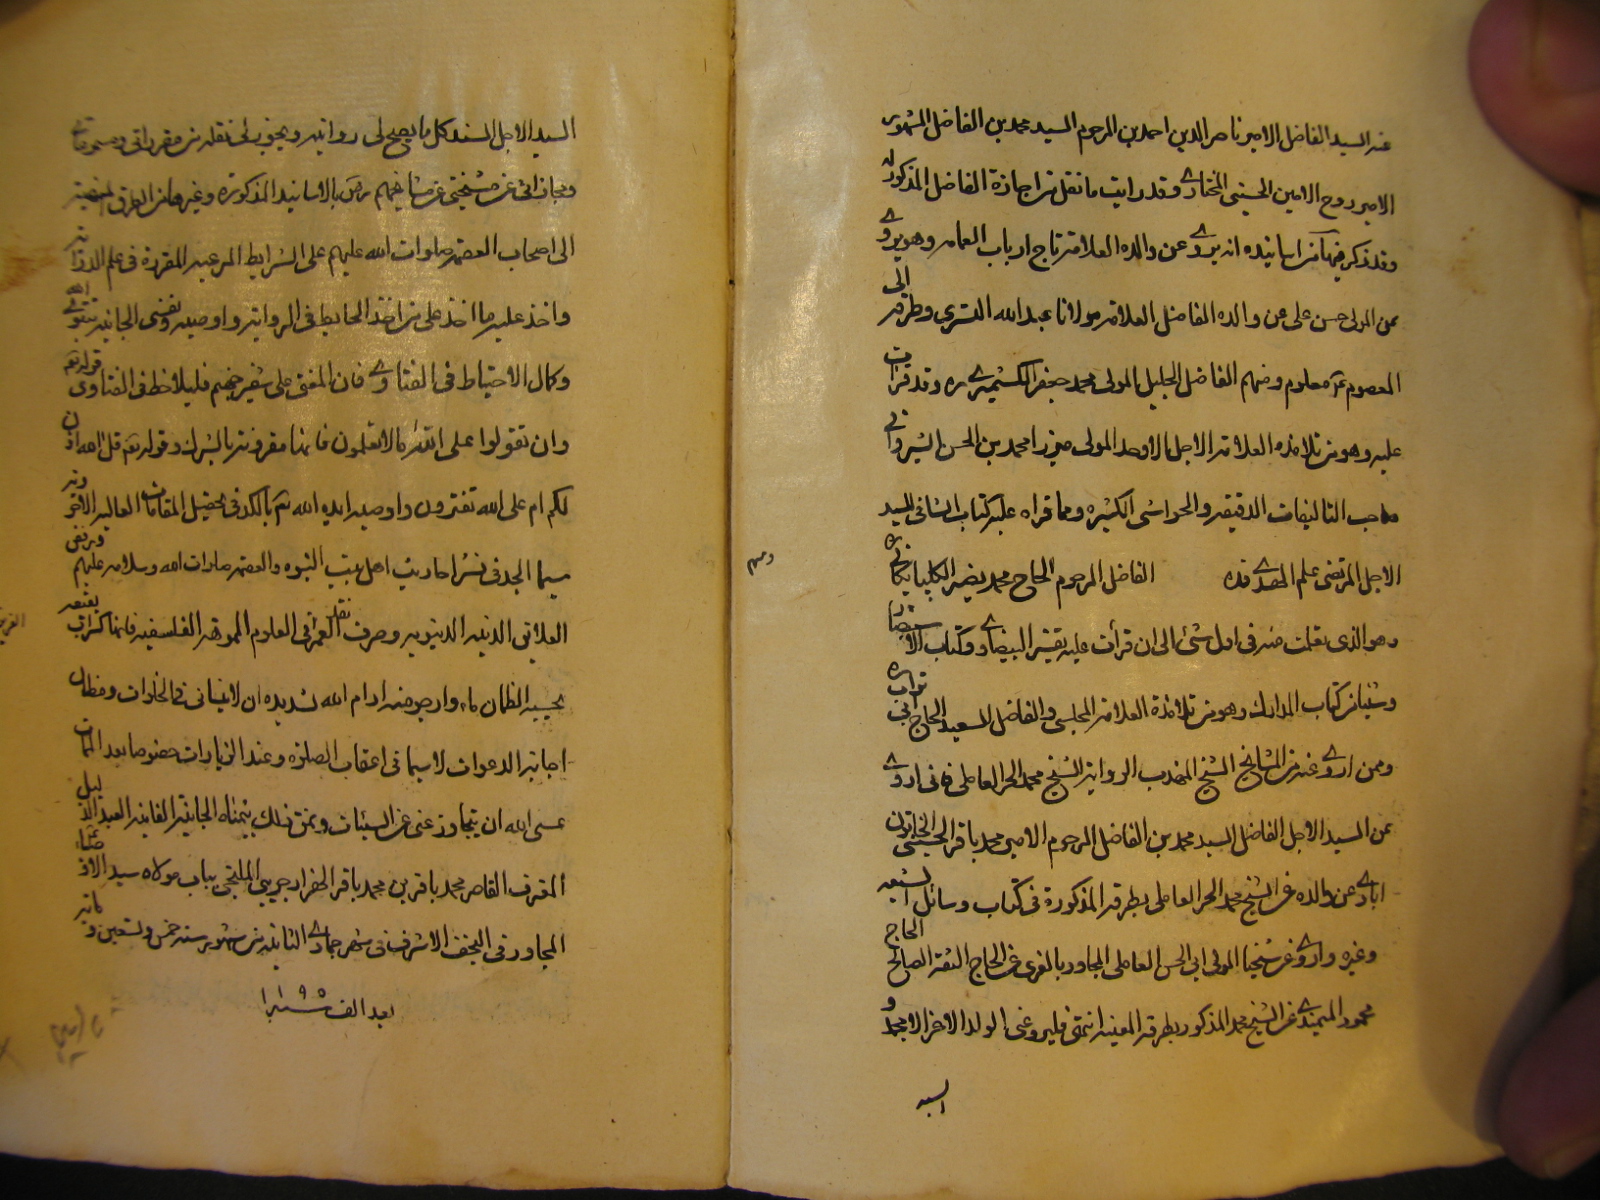 عنه السيد الفاضل الامير ناصر الدين احمد بن المرحوم السيد محمد بن الفاضل المشهور
الامير روح الامين الحسيني المختاري وقد رايت ما نقل من اجازة الفاضل المذكور له
وقد ذكر فيها من اسانيده انه يروي عن والده العلامة تاج ارباب العمامه وهو يروي
عن المولى حسن علي عن والده الفاضل العلامة مولانا عبد الله التستري وطرقه الى
المعصوم ع معلوم ومنهم الفاضل الجليل المولى محمد جعفر الكشميري ره وقد قرات
عليه وهو من تلامذه العلامة الاجل الاوحد المولى ميرزا محمد بن الحسن الشيرواني
صاحب التاليفات الدقيقة والحواشي الكثيره ومما قراه عليه كتاب الشافي للسيد
الاجل المرتضى علم الهدى قده الفاضل المرحوم الحاج محمد رضي الكلپايكاني ره
ومنهم
وهو الذي تعلمت منه في اول شئ الى ان قرأت عليه تفسير البيضاوي وكتاب الاستبصار
وشيئا من كتاب المدارك وهو من تلامذة العلامة المجلسي والفاضل السعيد الحاج ابي تراب ره
وممن اروي عنه من المشايخ الشيخ المهذب الرواية الشيخ محمد الحر العاملي فاني اروي
عن السيد الاجل الفاضل السيد محمد بن الفاضل المرحوم الامير محمد باقر الحسيني الخاتون
ابادي عن والده عن الشيخ محمد الحر العاملي بطرقه المذكورة في كتاب وسائل الشيعه
وغيره واروي عن شيخنا المولى ابي الحسن العاملي المجاور بالغري عن الحاج الثقة الصالح الحاج
محمود الميمندي عن الشيخ محمد المذكور بطرقه المعينه انتهى فليرو عني الولد الاعز الامجد و
السيد
السيد الاجل السند كل ما يصح لي روايته ويجوز لي نقله من مقرواتي ومسموعاتي
ومجازاتي عن مشيختي عن مشايخهم رض بالاسانيد المذكورة وغيرها من الطرق المنتهية
الى اصحاب العصمة صلوات الله عليهم على الشرايط المرعيه المقررة في علم الدراية
واخذ عليه ما اخذ علي من اخذ الحايط في الرواية واوصيه ونفسي الجانية بتقوى الله
وكمال الاحتياط في الفتاوي فان المفتي على شفير جهنم فليلاحظ في الفتاوى قوله تع
وان تقولوا على الله ما لا تعلمون فانها مقرونة بالشرك وقوله تع قل الله اذن
لكم ام على الله تفترون واوصيه ايده الله تع بالكد في تحصيل المقامات العالية الاخروية
سيما الجد في نشر احاديث اهل بيت النبوه والعصمة صلوات الله وسلامه عليهم ورفض
العلايق الدنيه الدنيويه وصرف نقد العمر في العلوم المموهة الفلسفيه فانها كسراب بقيعة
يحسبه الظمان ماء وارجو منه ادام الله تسديده ان لا ينساني في الخلوات ومظان
اجابة الدعوات لا سيما في اعقاب الصلوة وعند الزيارات خصوصا بعد الممات
عسى الله ان يتجاوز عني عن السيئات ونمق ذلك بيمناه الجانية الفانية العبد الذليل
المقترف القاصر محمد باقر بن محمد باقر الهزارجريبي الملتجي بباب مولاه سيد الاوصياء
المجاور في النجف الاشرف في شهر جمادي الثانيه من شهور سنه خمس وتسعين وماية
بعد الف سنة ١١٩٥